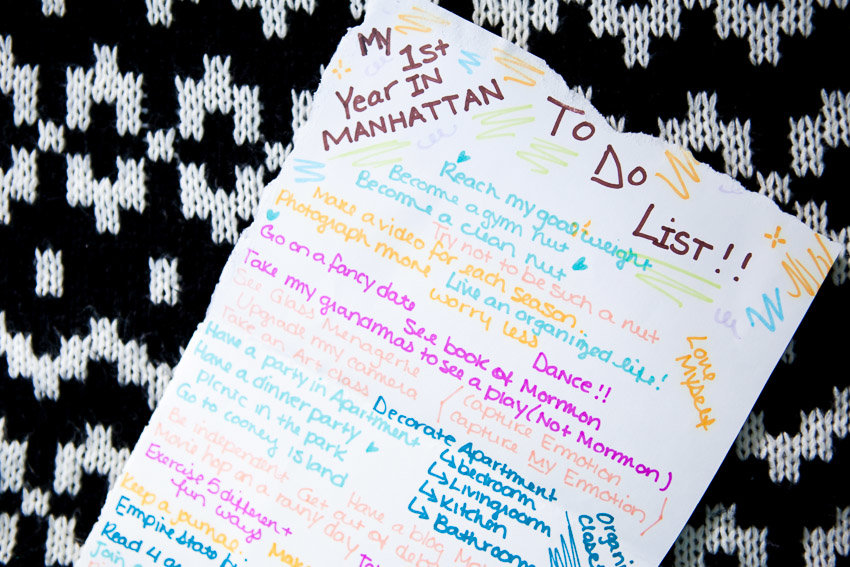 My
1st
Year IN
MANHATTAN
To
Do
List!!
Reach my good weight
Become a gym nut
Become a clean nut
Try not to be such a nut
Make a video for each season..
Photograph more
Live an organized life!
worry less
Love
Myself
Go on a fancy date
Dance!!
See book of Mormon
Take my grandmas to see a play (Not Mormon)
See Glass Menagerie
Upgrade my camera
Take an Art class
Capture Emotion
capture My Emotion
Have a party in Apartment
Have a dinner party
Picnic in the park
Go to cooney island
Decorate Apartment
bedroom
Livingroom
Kitchen
Bathroom
Be independent
Movie hop on a rainy day
Get out of debt
Have a blog
Exercise 5 different
fun ways
Keep a journal..
Empire state
Read 4
Join